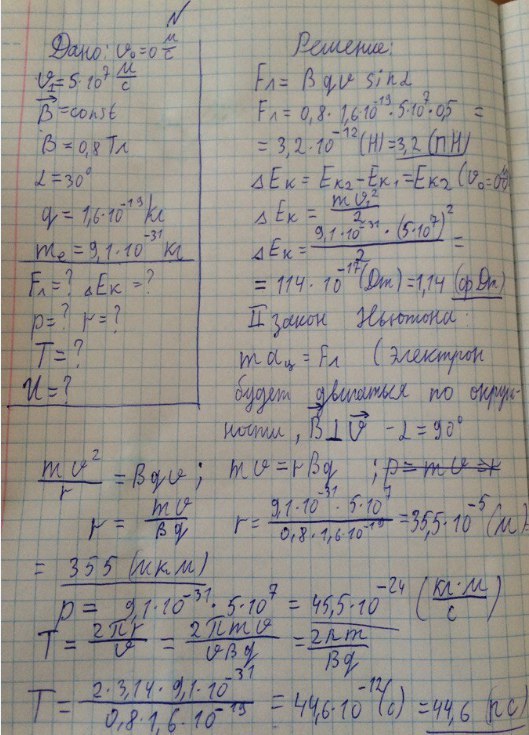 Дано: v₀=0 м/с
v₁=5·10⁷ м/с
B⃗=const
B=0,8Тл
α=30°
q=1,6·10⁻¹⁹ кг
mₑ=9,1·10⁻³¹ кг
Fл=? ΔEк=?
p=? r=?
T=?
И=?
Решение:
Fл= Bqv sinα
Fл=0,8·1,6·10⁻¹⁹·5·10⁷·0,5 =
= 3,2·10⁻¹²(Н)=3,2(пН)
ΔEк = Eк₂-Eк₁=Eк₂ (v₀=0
ΔEк = mv₁²/2
ΔEк= 9,1·10⁻³¹·(5·10⁷)²/2 =
= 114·10⁻¹⁷(Дж)=1,14 (фДж)
II закон Ньютона:
maц = Fл (электрон
будет двигаться по окруж-
ности, B⃗⊥v⃗ -α=90°
mv²/r = Bqv; mv=rBq ; p=mv=r
r = mv/Bq r= 9,1·10⁻³¹·5·10⁷/0,8·1,6·10⁻¹⁹ =35,5·10⁻⁵(м)
= 355 (мкм)
p= 9,1·10⁻³¹·5·10⁷ = 45,5·10⁻²⁴ (кг·м/с)
T= 2πr/v = 2πmv/vBq = 2πm/Bq
T= 2·3,14·9,1·10⁻³¹/0,8·1,6·10⁻¹⁹ = 44,6·10⁻¹²(с) =44,6 (пс)